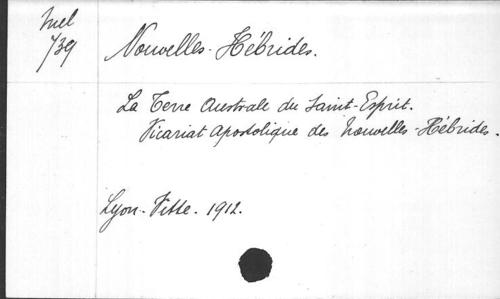 Mel
739
Nouvelles-Hébrides.
La Terre Australe du Saint-Esprit.
Vicariat Apostolique des Nouvelles-Hébrides.
Lyon. Vitte. 1912.